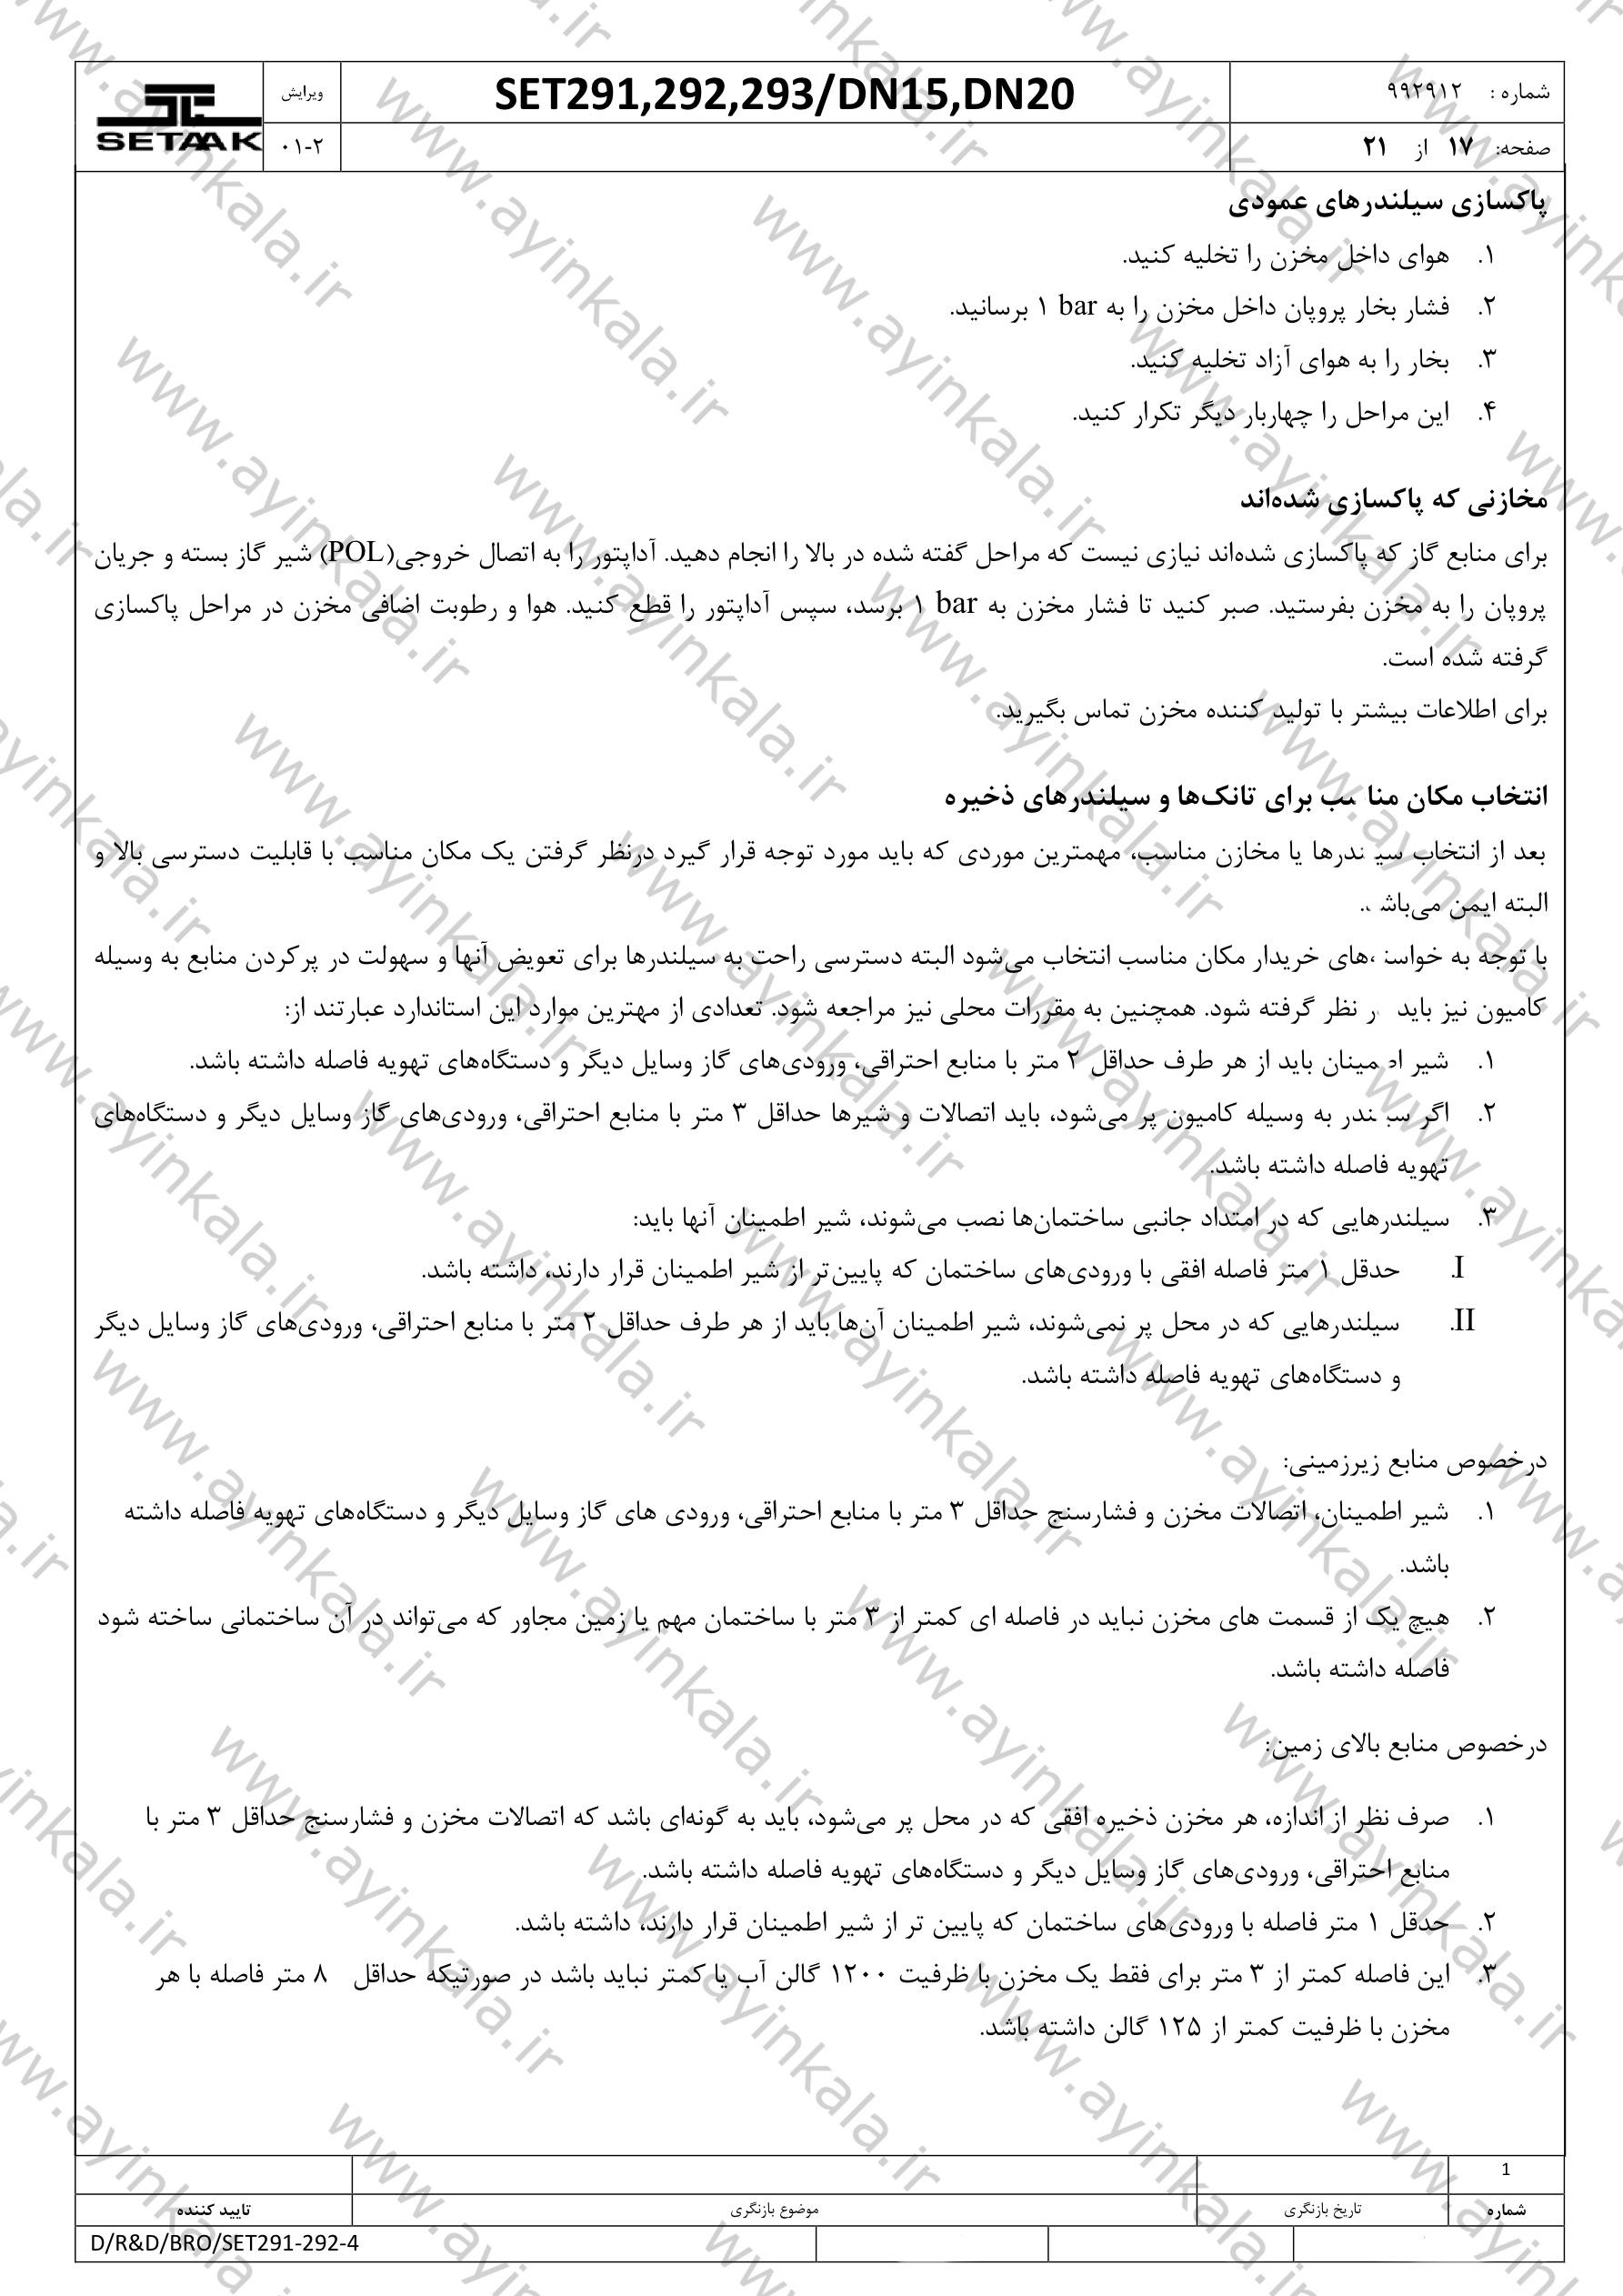 SETAAK
ویرایش
۰۱-۲
SET291,292,293/DN15,DN20
شماره : ۹۹۲۹۱۲
صفحه: ۱۷ از ۲۱
پاکسازی سیلندرهای عمودی
۱. هوای داخل مخزن را تخلیه کنید.
۲. فشار بخار پروپان داخل مخزن را به ۱ bar برسانید.
۳. بخار را به هوای آزاد تخلیه کنید.
۴. این مراحل را چهاربار دیگر تکرار کنید.
مخازنی که پاکسازی شده‌اند
برای منابع گاز که پاکسازی شده‌اند نیازی نیست که مراحل گفته شده در بالا را انجام دهید. آداپتور را به اتصال خروجی(POL) شیر گاز بسته و جریان
پروپان را به مخزن بفرستید. صبر کنید تا فشار مخزن به ۱ bar برسد، سپس آداپتور را قطع کنید. هوا و رطوبت اضافی مخزن در مراحل پاکسازی
گرفته شده است.
برای اطلاعات بیشتر با تولید کننده مخزن تماس بگیرید.
انتخاب مکان مناسب برای تانک‌ها و سیلندرهای ذخیره
بعد از انتخاب سیلندرها یا مخازن مناسب، مهمترین موردی که باید مورد توجه قرار گیرد درنظر گرفتن یک مکان مناسب با قابلیت دسترسی بالا و
البته ایمن می‌باشد.
با توجه به خواسته‌های خریدار مکان مناسب انتخاب می‌شود البته دسترسی راحت به سیلندرها برای تعویض آنها و سهولت در پرکردن منابع به وسیله
کامیون نیز باید در نظر گرفته شود. همچنین به مقررات محلی نیز مراجعه شود. تعدادی از مهترین موارد این استاندارد عبارتند از:
۱. شیر اطمینان باید از هر طرف حداقل ۲ متر با منابع احتراقی، ورودی‌های گاز وسایل دیگر و دستگاه‌های تهویه فاصله داشته باشد.
۲. اگر سیلندر به وسیله کامیون پر می‌شود، باید اتصالات و شیرها حداقل ۳ متر با منابع احتراقی، ورودی‌های گاز وسایل دیگر و دستگاه‌های
تهویه فاصله داشته باشد.
۳. سیلندرهایی که در امتداد جانبی ساختمان‌ها نصب می‌شوند، شیر اطمینان آنها باید:
I. حدقل ۱ متر فاصله افقی با ورودی‌های ساختمان که پایین‌تر از شیر اطمینان قرار دارند، داشته باشد.
II. سیلندرهایی که در محل پر نمی‌شوند، شیر اطمینان آن‌ها باید از هر طرف حداقل ۲ متر با منابع احتراقی، ورودی‌های گاز وسایل دیگر
و دستگاه‌های تهویه فاصله داشته باشد.
درخصوص منابع زیرزمینی:
۱. شیر اطمینان، اتصالات مخزن و فشارسنج حداقل ۳ متر با منابع احتراقی، ورودی های گاز وسایل دیگر و دستگاه‌های تهویه فاصله داشته
باشد.
۲. هیچ یک از قسمت های مخزن نباید در فاصله ای کمتر از ۳ متر با ساختمان مهم یا زمین مجاور که می‌تواند در آن ساختمانی ساخته شود
فاصله داشته باشد.
درخصوص منابع بالای زمین:
۱. صرف نظر از اندازه، هر مخزن ذخیره افقی که در محل پر می‌شود، باید به گونه‌ای باشد که اتصالات مخزن و فشارسنج حداقل ۳ متر با
منابع احتراقی، ورودی‌های گاز وسایل دیگر و دستگاه‌های تهویه فاصله داشته باشد.
۲. حدقل ۱ متر فاصله با ورودی‌های ساختمان که پایین تر از شیر اطمینان قرار دارند، داشته باشد.
۳. این فاصله کمتر از ۳ متر برای فقط یک مخزن با ظرفیت ۱۲۰۰ گالن آب یا کمتر نباید باشد در صورتیکه حداقل ۸ متر فاصله با هر
مخزن با ظرفیت کمتر از ۱۲۵ گالن داشته باشد.
1
شماره
تاریخ بازنگری
موضوع بازنگری
تایید کننده
D/R&D/BRO/SET291-292-4
www.ayinkala.ir